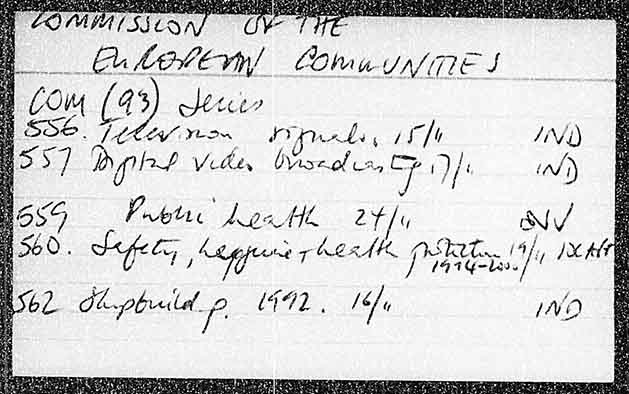 COMMISSION OF THE
EUROPEAN COMMUNITIES
COM (93) Series
556. Television signals, 15/11 IND
557 Digital video broadcasting 17/11 IND
559 Public health 24/11
560. Safety, hygiene + health protection 19/11
1994-2000
562 Shipbuildg. 1992. 16/11 IND